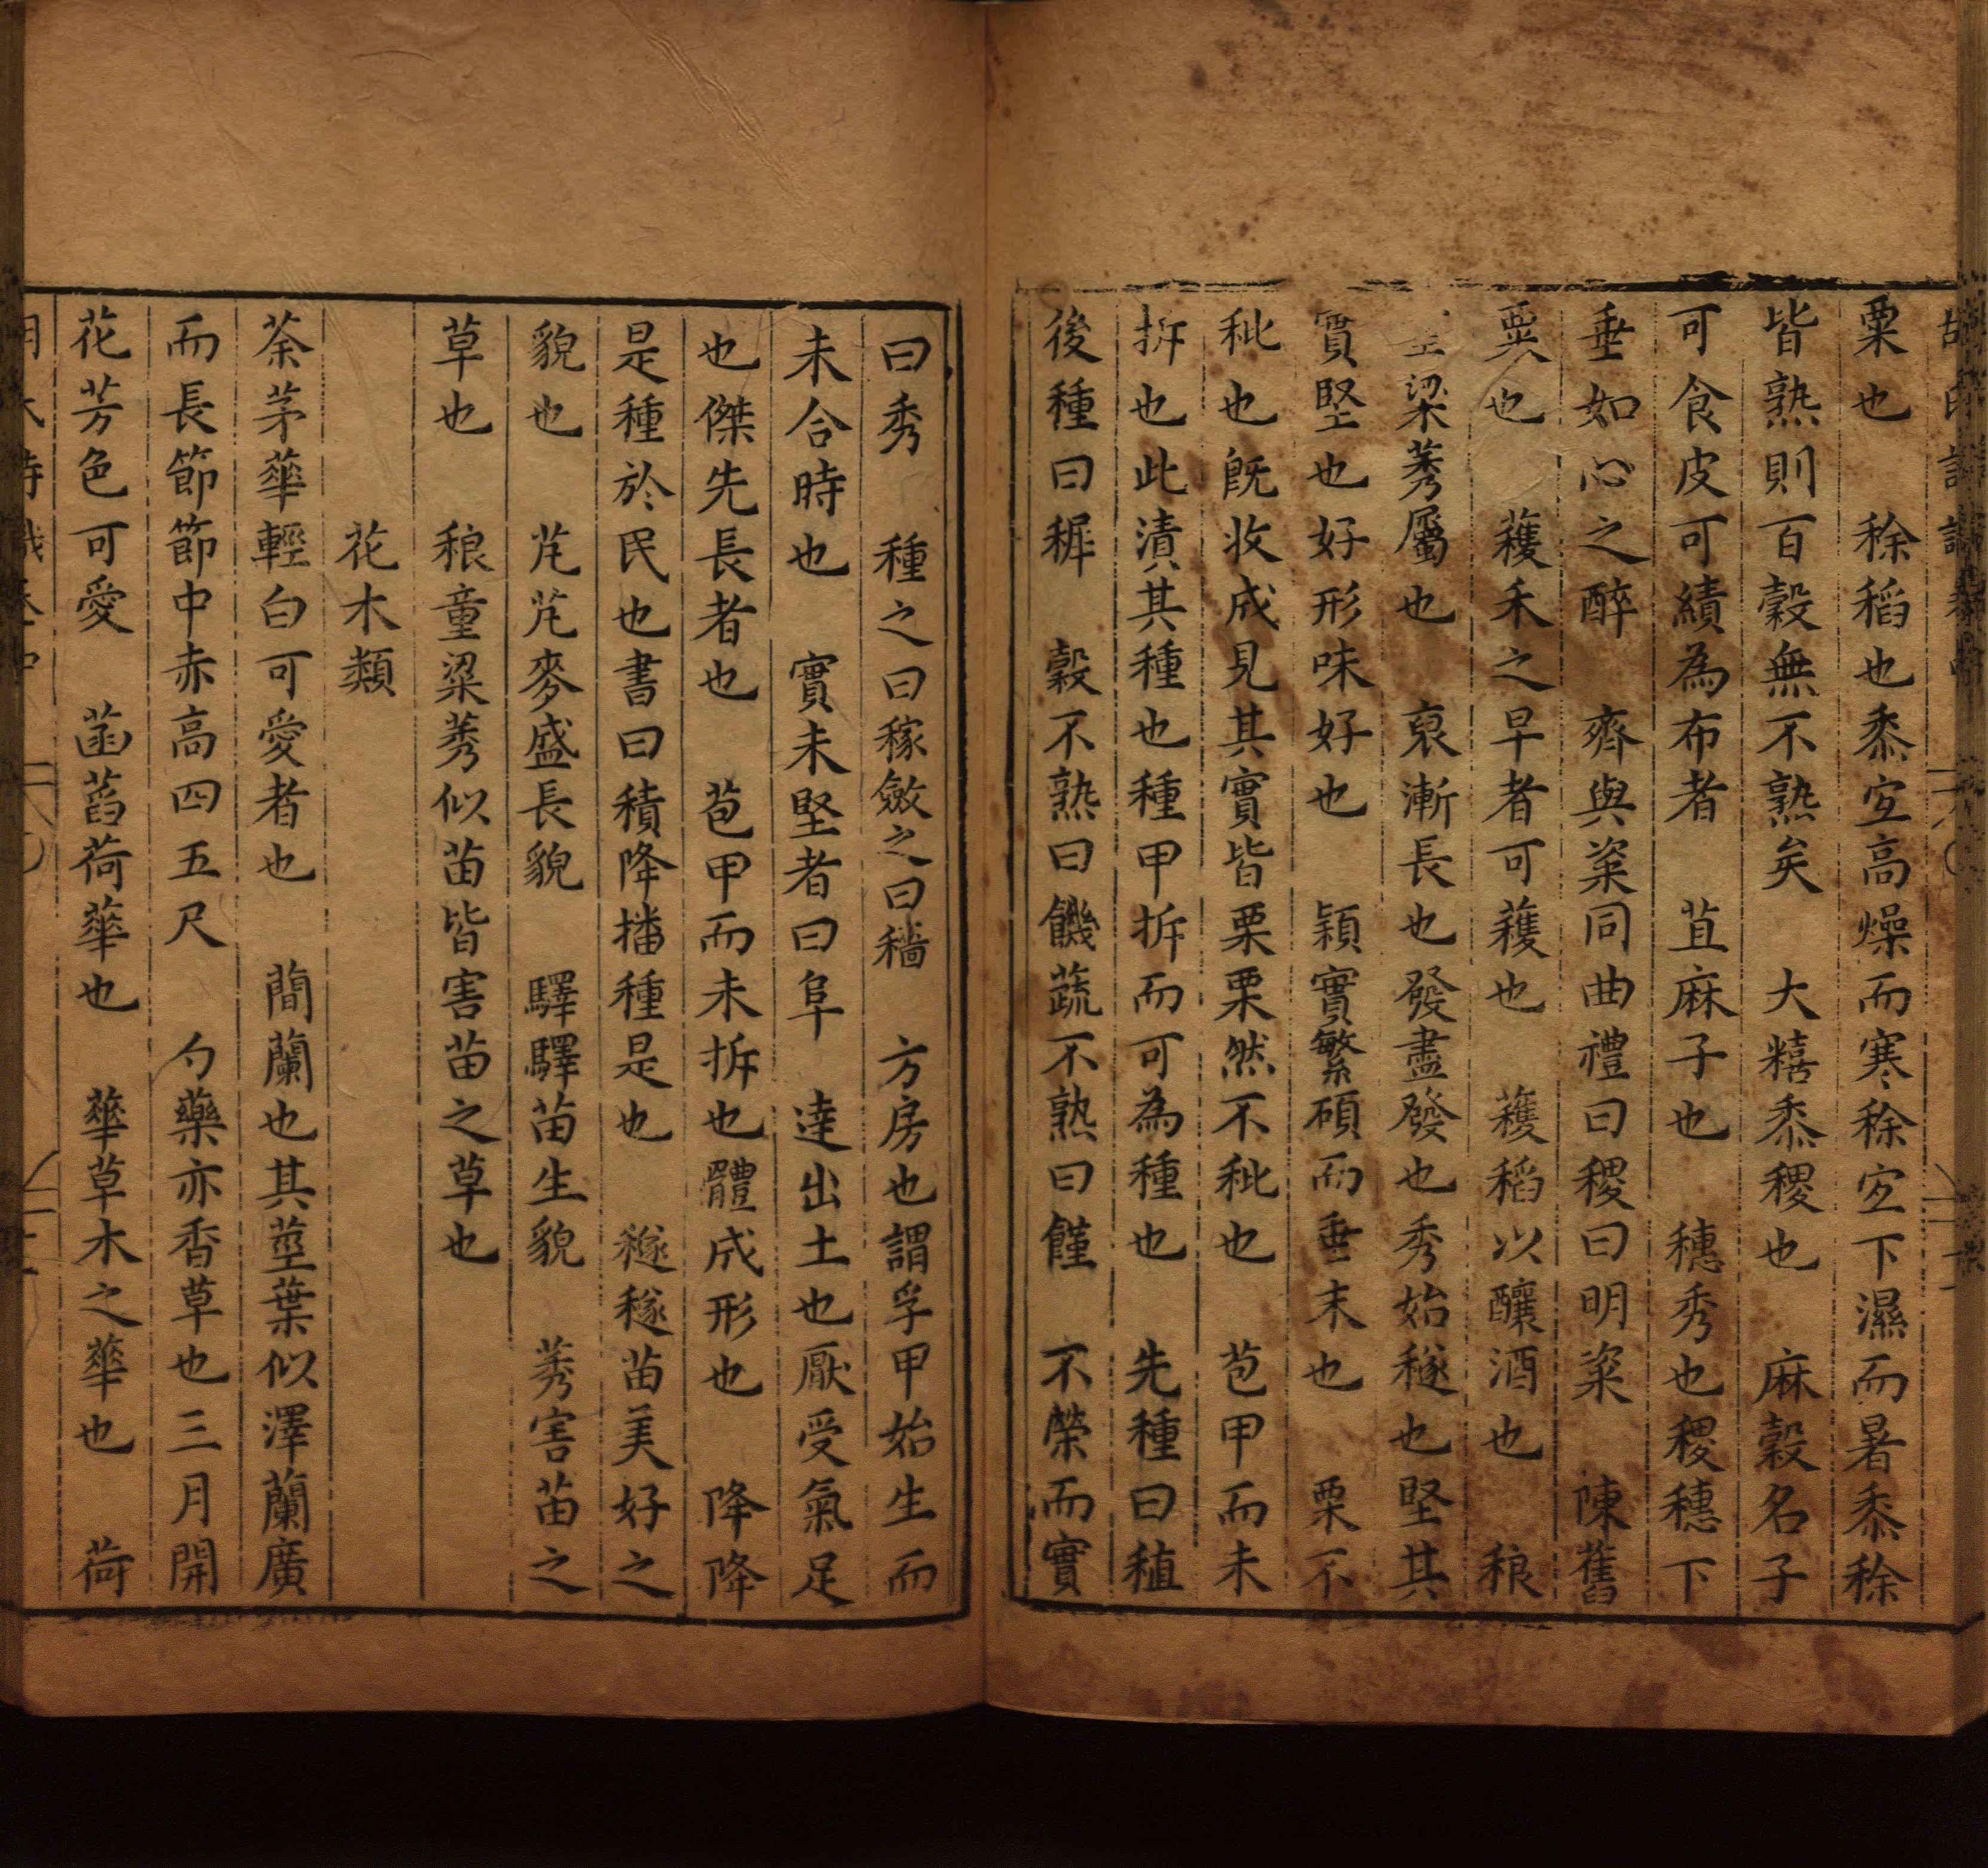 粟也　稌稻也黍宜高燥而寒稌宜下濕而暑黍稌
皆熟則百穀無不熟矣　大糦黍稷也　麻穀名子
可食皮可績為布者　苴麻子也　穗秀也稷穗下
垂如心之醉　齊與粢同曲禮曰稷曰明粢　陳舊
粟也　穫禾之早者可穫也　穫稻以釀酒也　稂
梁莠屬也　裒漸長也發盡發也秀始穟也堅其
實堅也好形味好也　穎實繁碩而垂末也　栗不
秕也既收成見其實皆栗栗然不秕也　苞甲而未
拆也此漬其種也種甲拆而可為種也　先種曰稙
後種曰穉　穀不熟曰饑蔬不熟曰饉　不榮而實
曰秀　種之曰稼斂之曰穡　方房也謂孚甲始生而
未合時也　實未堅者曰阜　達出土也厭受氣足
也傑先長者也　苞甲而未拆也體成形也　降降
是種於民也書曰積降播種是也　穟穟苗美好之
貌也　芃芃麥盛長貌　驛驛苗生貌　莠害苗之
草也　稂童粱莠似苗皆害苗之草也
花木類
荼茅華輕白可愛者也　蕑蘭也其莖葉似澤蘭廣
而長節節中赤高四五尺　勺藥亦香草也三月開
花芳色可愛　菡萏荷華也　華草木之華也　荷